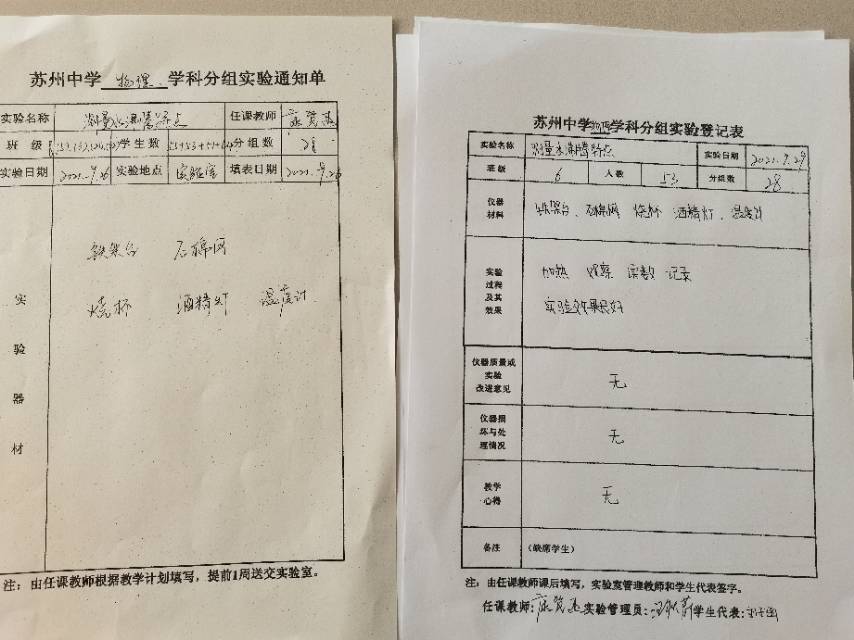 苏州中学 物理 学科分组实验通知单
实验名称 测量水沸腾特点 任课教师
班 级 学生数 分组数 28
实验日期 2021.9.26 实验地点 实验室 填表日期
铁架台 石棉网
烧杯 酒精灯 温度计
实
验
器
材
注：由任课教师根据教学计划填写，提前1周送交实验室。
苏州中学物理学科分组实验登记表
实验名称 测量水沸腾特点 实验日期 2021.9.29
班 级 6 人 数 53 分组数 28
仪器
材料
铁架台、石棉网 烧杯 酒精灯、温度计
实验
过程
及其
效果
加热 观察 读数 记录
实验效果良好
仪器质量或
实验
改进意见
无
仪器损
坏与处
理情况
无
教学
心得
无
备注 （缺席学生）
注：由任课教师课后填写，实验室管理教师和学生代表签字。
任课教师： 实验管理员： 学生代表：